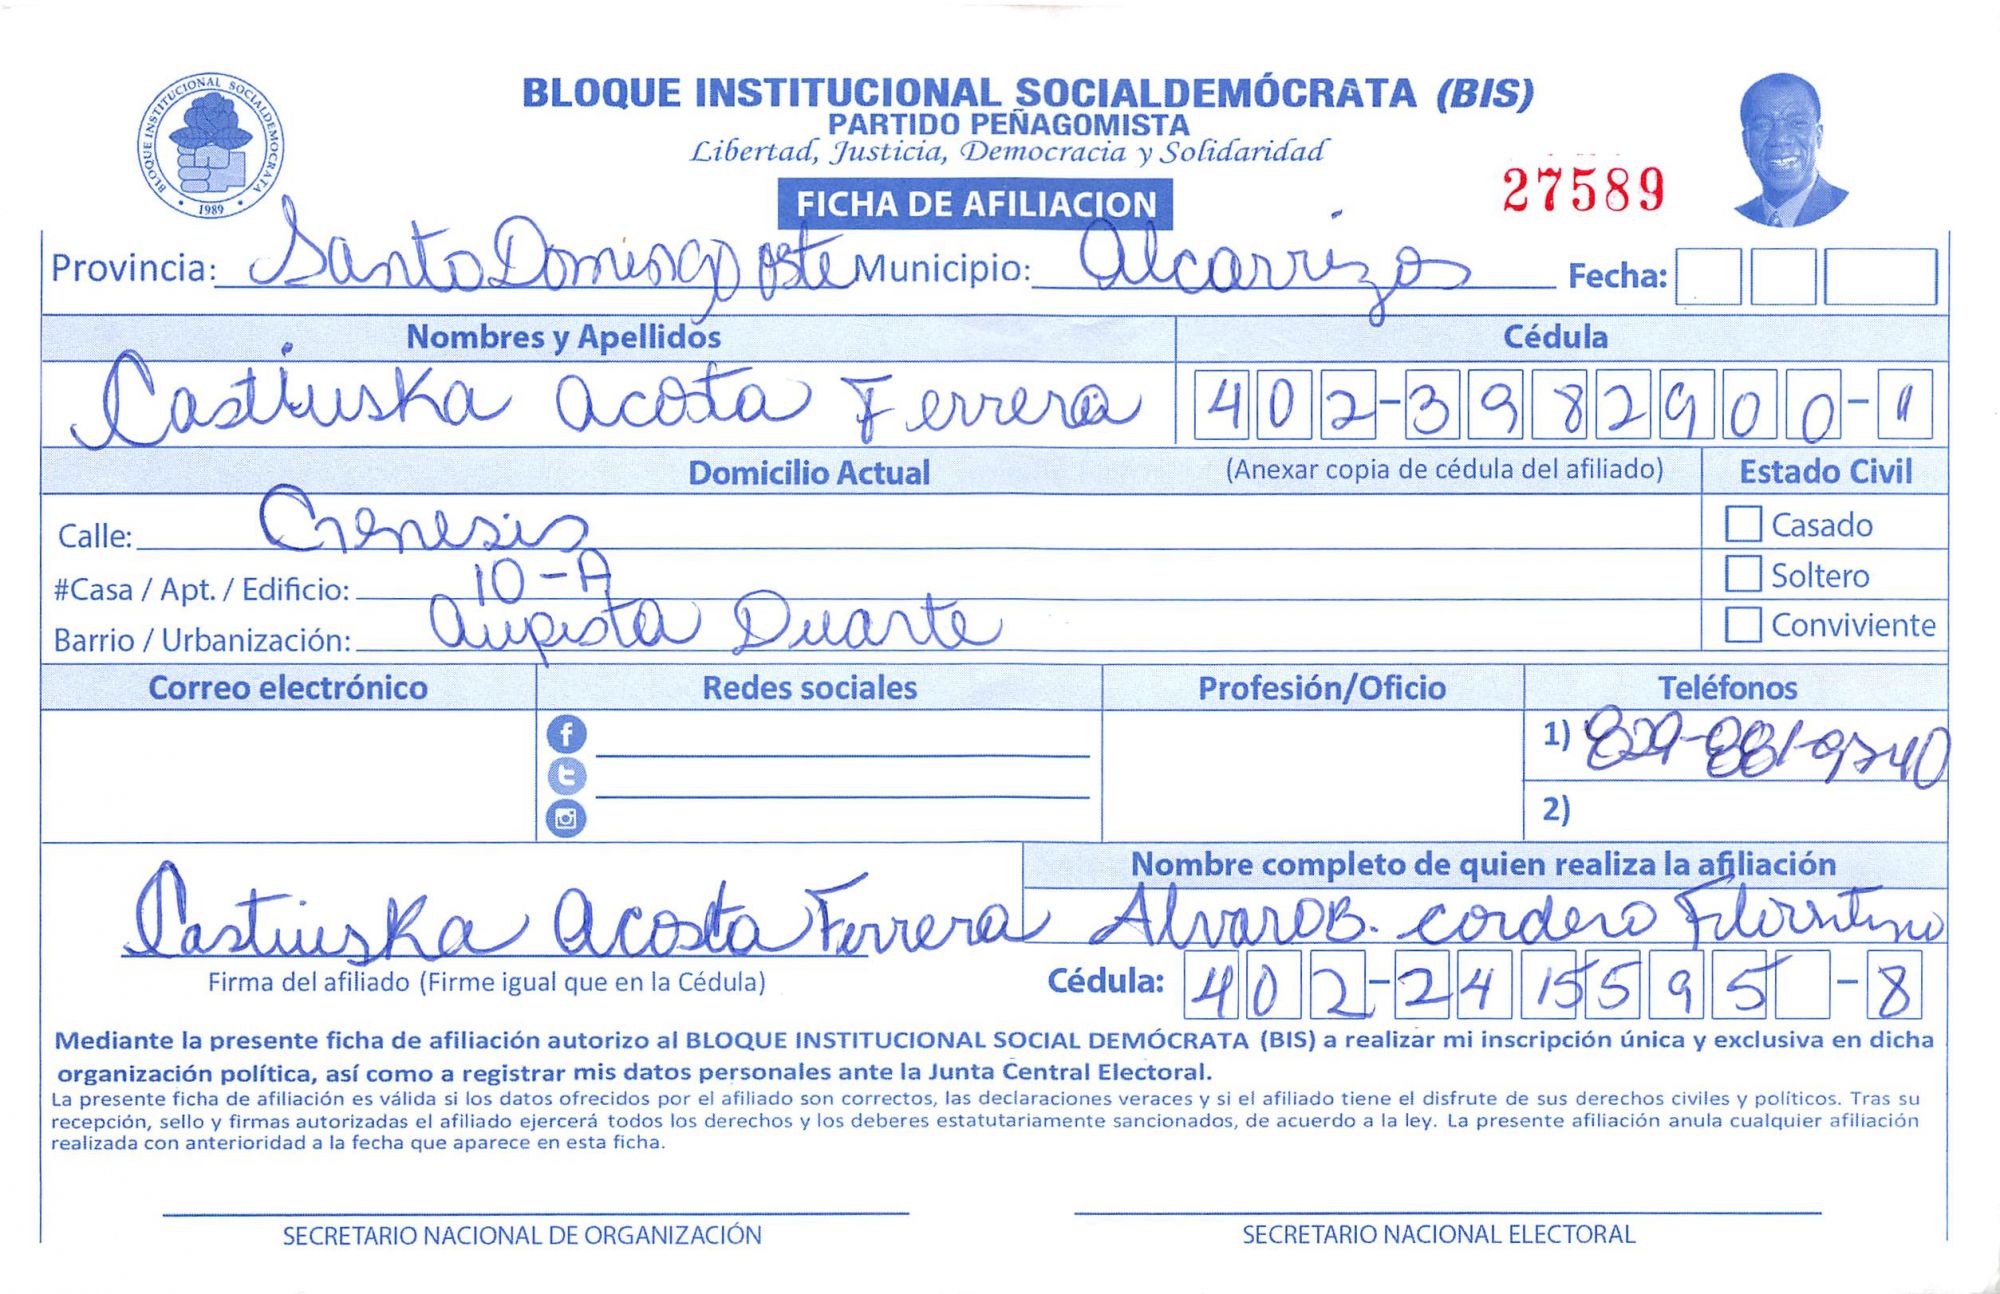 BLOQUE INSTITUCIONAL SOCIALDEMÓCRATA (BIS)
PARTIDO PEÑAGOMISTA
Libertad, Justicia, Democracia y Solidaridad
BLOQUE INSTITUCIONAL SOCIALDEMOCRATA
1989
27589
FICHA DE AFILIACION
Provincia: Santo Domingo oste Municipio: Alcarrizos Fecha:
Nombres y Apellidos Cédula
Castiuska Acosta Ferrera 402-3982900-1
Domicilio Actual (Anexar copia de cédula del afiliado) Estado Civil
Calle: Genesis Casado
#Casa / Apt. / Edificio: 10-A Soltero
Barrio / Urbanización: Duarte Conviviente
Correo electrónico Redes sociales Profesión/Oficio Teléfonos
1) 829-881-9740
2)
Nombre completo de quien realiza la afiliación
Castiuska Acosta Ferrera Alvaro B. Cordero
Firma del afiliado (Firme igual que en la Cédula) Cédula: 402-2415595-8
Mediante la presente ficha de afiliación autorizo al BLOQUE INSTITUCIONAL SOCIAL DEMÓCRATA (BIS) a realizar mi inscripción única y exclusiva en dicha
organización política, así como a registrar mis datos personales ante la Junta Central Electoral.
La presente ficha de afiliación es válida si los datos ofrecidos por el afiliado son correctos, las declaraciones veraces y si el afiliado tiene el disfrute de sus derechos civiles y políticos. Tras su
recepción, sello y firmas autorizadas el afiliado ejercerá todos los derechos y los deberes estatutariamente sancionados, de acuerdo a la ley. La presente afiliación anula cualquier afiliación
realizada con anterioridad a la fecha que aparece en esta ficha.
SECRETARIO NACIONAL DE ORGANIZACIÓN SECRETARIO NACIONAL ELECTORAL